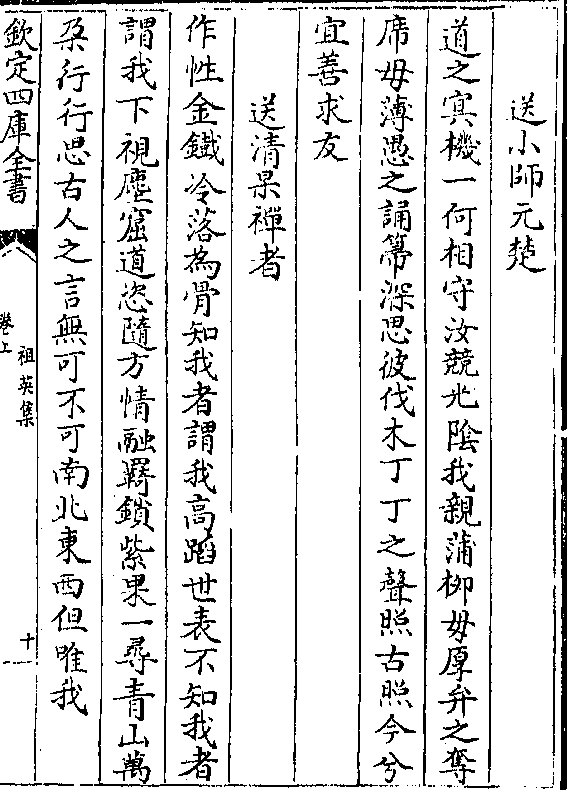 送小師元楚
道之㝠機一何相守汝競光陰我親蒲柳毋厚弁之奪
席毋薄愚之誦箒深思彼伐木丁丁之聲照古照今兮
宜善求友
送清杲禪者
作性金鐵冷落為骨知我者謂我高蹈世表不知我者
謂我下視塵窟道恣隨方情融羇鎖紫果一尋青山萬
朶行行思古人之言無可不可南北東西但唯我
欽定四庫全書
卷上
祖英集
十